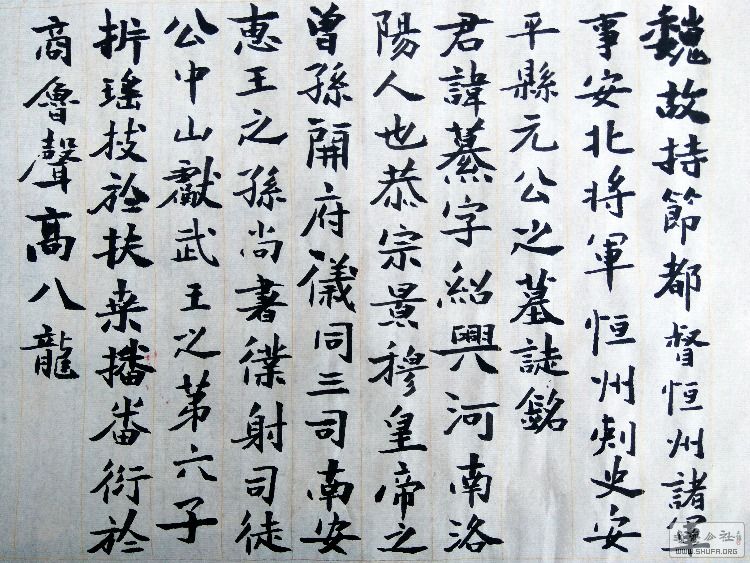 魏故持節都督恒州諸軍
事安北將軍恒州刺史安
平縣元公之墓誌銘
君諱纂字紹興河南洛
陽人也恭宗景穆皇帝之
曾孫開府儀同三司南安
惠王之孫尚書僕射司徒
公中山獻武王之第六子
折瑤技於扶桒播番衍於
商會聲高八龍
WWW.SHUFA.ORG